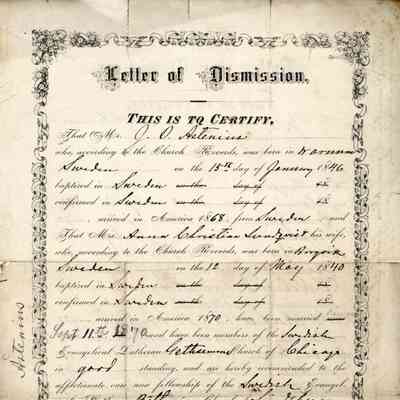 Letter of Dismission,
THIS IS TO CERTIFY,
That Mr. J. O. Artenius
who, according to the Church Records, was born in
Sweden on the 15th day of January 1846
baptized in Sweden on the day of 18
confirmed in Sweden on the day of 18
, arrived in America 1868, from Sweden, and
That Mrs. Anna Christina Lundqvist his wife,
who, according to the Church Records, was born in
Sweden, on the 12 day of May 1840
baptized in Sweden on the day of 18
confirmed in Sweden on the day of 18
arrived in America 1870, have been married
Sept 11th 1870 and have been members of the Swedish
Evangelical Lutheran Gethsemane Church of Chicago
in good standing, and are hereby recommended to the
affectionate care and fellowship of the Swedish Evangel.
Artenius